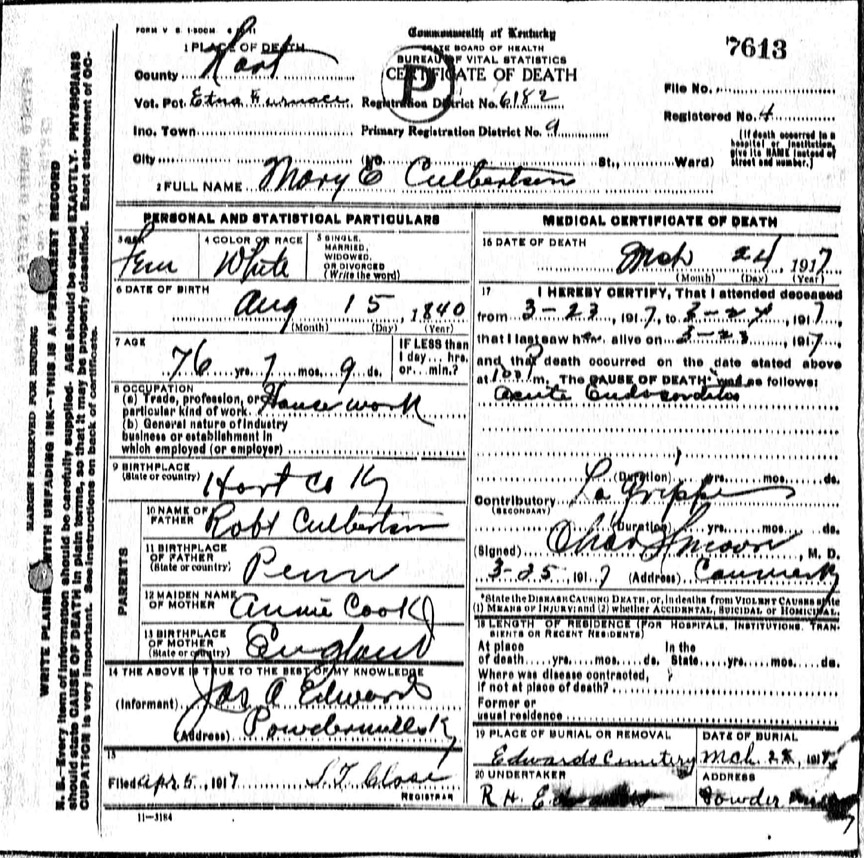 FORM V. S. 1-500M
Commonwealth of Kentucky
STATE BOARD OF HEALTH
BUREAU OF VITAL STATISTICS
CERTIFICATE OF DEATH
P
7613
1 PLACE OF DEATH
County Hart
Vot. Pct. Etna Furnace Registration District No. 6182
Inc. Town Primary Registration District No. 9
City (No. St., Ward)
File No.
Registered No. 4
[If death occurred in a
hospital or institution,
give its NAME instead of
street and number.]
2 FULL NAME Mary E Culbertson
PERSONAL AND STATISTICAL PARTICULARS
3 SEX
Fem
4 COLOR OR RACE
White
5 SINGLE,
MARRIED,
WIDOWED,
OR DIVORCED
(Write the word)
6 DATE OF BIRTH
Aug 15, 1840
(Month) (Day) (Year)
7 AGE
76 yrs. 7 mos. 9 ds.
IF LESS than
1 day ... hrs.
or ... min.?
8 OCCUPATION
(a) Trade, profession, or
particular kind of work House work
(b) General nature of industry
business or establishment in
which employed (or employer)
9 BIRTHPLACE
(State or country) Hart Co Ky
PARENTS
10 NAME OF
FATHER Robt Culbertson
11 BIRTHPLACE
OF FATHER
(State or country) Penn
12 MAIDEN NAME
OF MOTHER Annie Cook
13 BIRTHPLACE
OF MOTHER
(State or country) England
14 THE ABOVE IS TRUE TO THE BEST OF MY KNOWLEDGE
(Informant) Jas A Edwards
(Address) Powdermills Ky
15
Filed Apr 5, 1917 S. T. Close
REGISTRAR
11-3184
MEDICAL CERTIFICATE OF DEATH
16 DATE OF DEATH
Mch 24, 1917
(Month) (Day) (Year)
17 I HEREBY CERTIFY, That I attended deceased
from 3-23, 1917, to 3-24, 1917,
that I last saw h alive on 3-23, 1917,
and that death occurred on the date stated above
at m. The CAUSE OF DEATH* was as follows:
Acute Endocarditis
(Duration) yrs. mos. ds.
Contributory La Grippe
(SECONDARY)
(Duration) yrs. mos. ds.
(Signed) Chas , M. D.
3-25, 1917 (Address) Canmer Ky
*State the DISEASE CAUSING DEATH, or, in deaths from VIOLENT CAUSES state
(1) MEANS OF INJURY; and (2) whether ACCIDENTAL, SUICIDAL or HOMICIDAL.
18 LENGTH OF RESIDENCE (FOR HOSPITALS, INSTITUTIONS, TRAN-
SIENTS OR RECENT RESIDENTS)
At place In the
of death yrs. mos. ds. State yrs. mos. ds.
Where was disease contracted,
if not at place of death?
Former or
usual residence
19 PLACE OF BURIAL OR REMOVAL
Edwards Cemetery
DATE OF BURIAL
Mch. 25, 1917
20 UNDERTAKER
R. H. Edwards
ADDRESS
Powder Mills
MARGIN RESERVED FOR BINDING
WRITE PLAINLY WITH UNFADING INK—THIS IS A PERMANENT RECORD
N. B.—Every item of information should be carefully supplied. AGE should be stated EXACTLY. PHYSICIANS
should state CAUSE OF DEATH in plain terms, so that it may be properly classified. Exact statement of OC-
CUPATION is very important. See instructions on back of certificate.